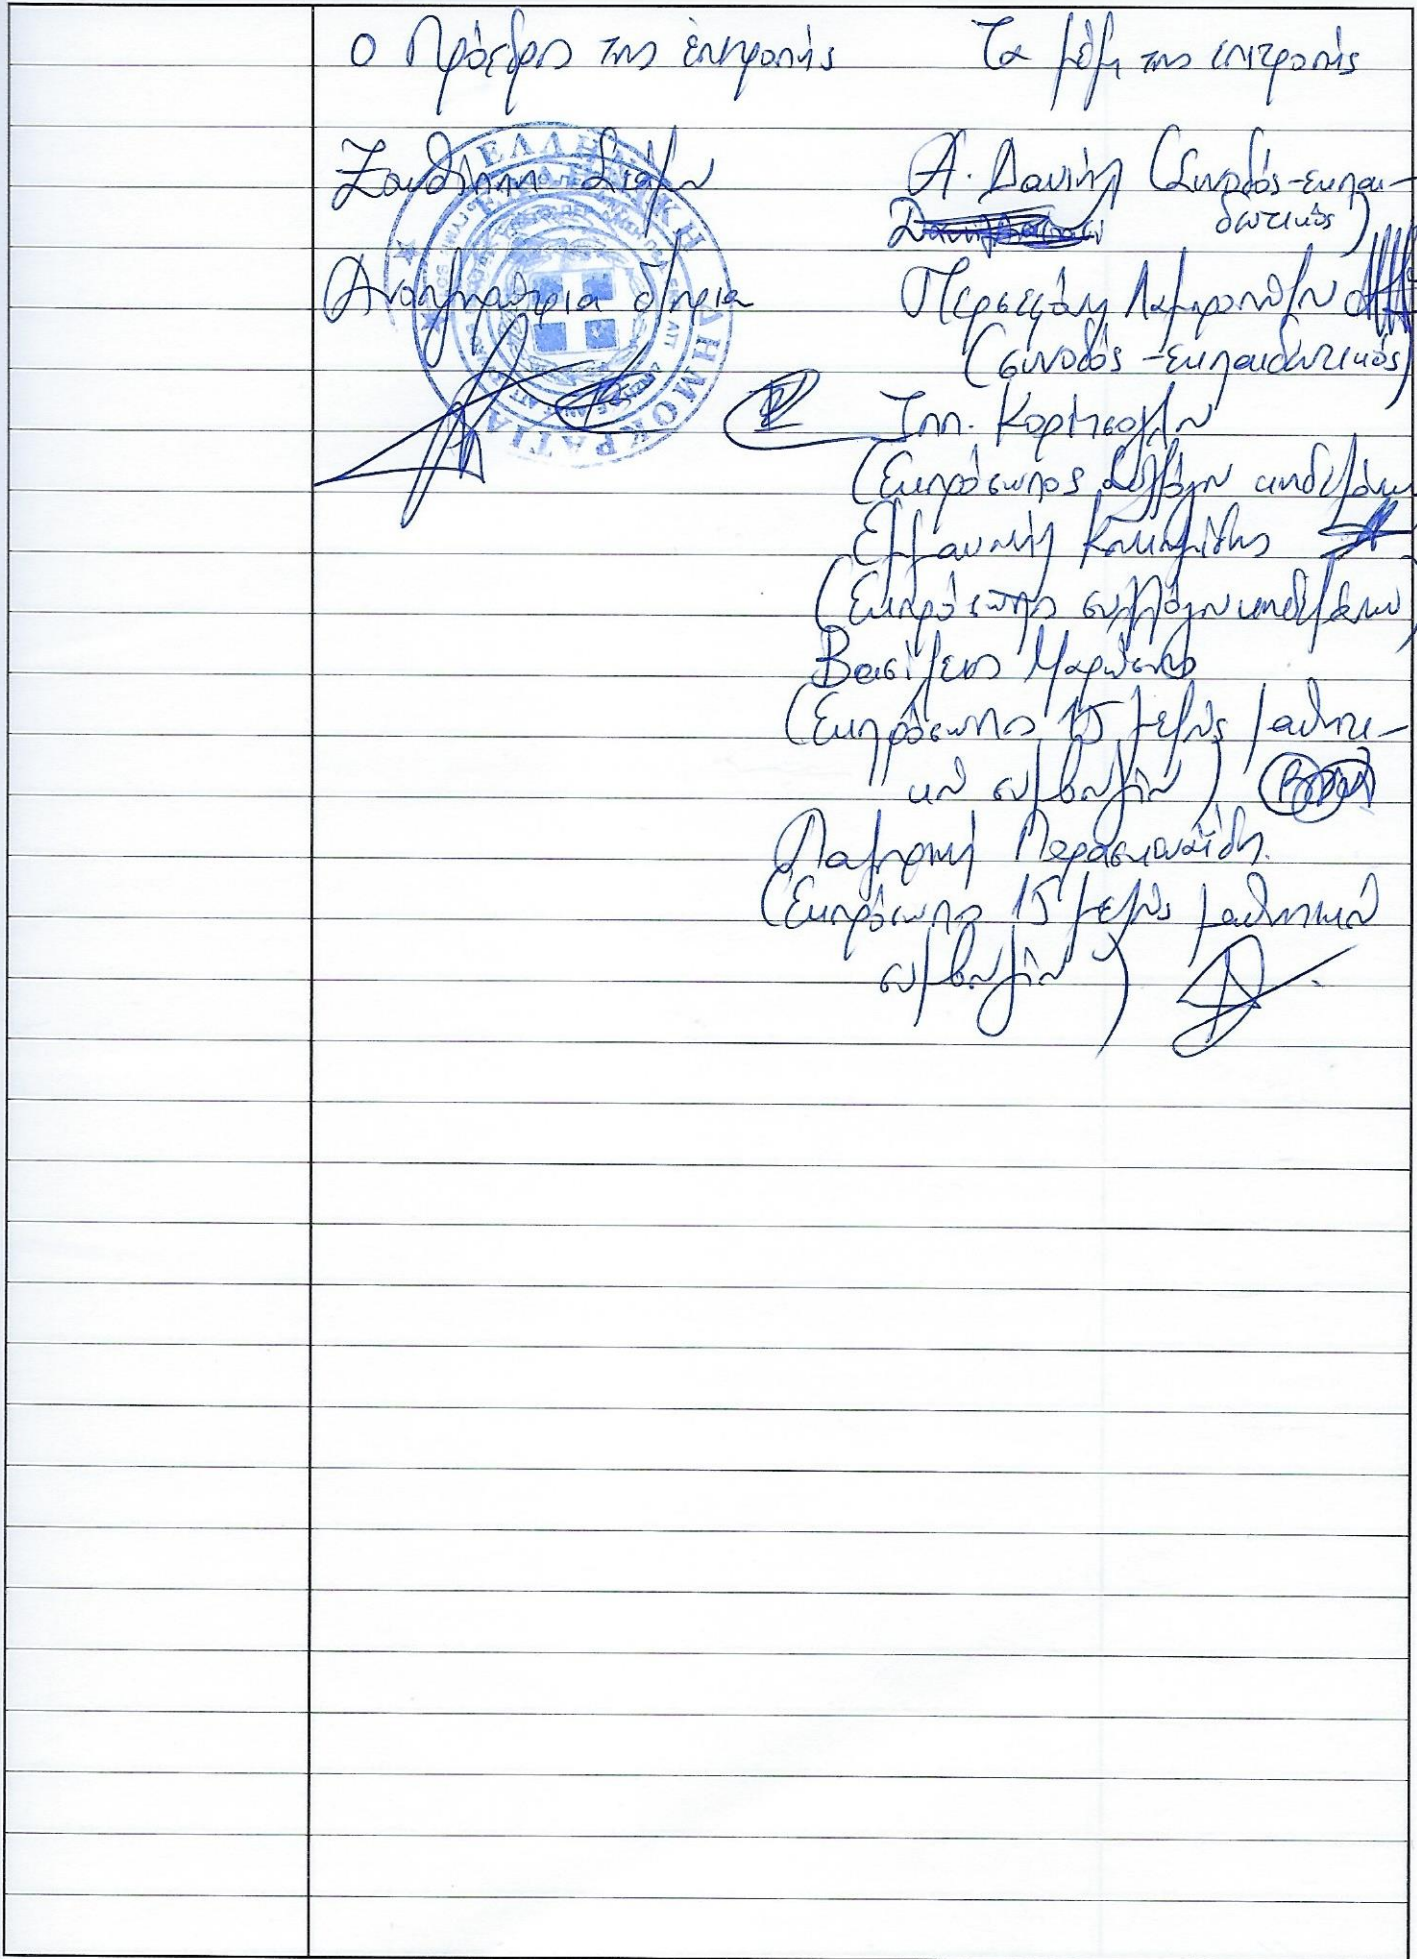 Ο Πρόεδρος της επιτροπής
Ξανθίππη
Αναπληρώτρια
ΕΛΛΗΝΙΚΗ ΔΗΜΟΚΡΑΤΙΑ
Τα μέλη της επιτροπής
Α. Δανιήλ (Συνοδός-εκπαι-
δευτικός)
Περσεφόνη Λαμπροπούλου
(συνοδός-εκπαιδευτικός)
Ιππ. Κορίτσογλου
(Εκπρόσωπος Συλλόγου κηδεμόνων
Εμμανουήλ
(Εκπρόσωπος συλλόγου κηδεμόνων)
Βασίλειος
(Εκπρόσωπος 15μελούς μαθητι-
κού συμβουλίου)
Λαμπρινή
(Εκπρόσωπος 15μελούς μαθητικού
συμβουλίου)